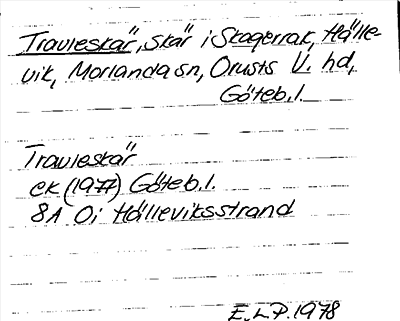 Travleskär, Skär i Skagerrak, Hälle-
vik, Morlanda sn, Orusts V. hd,
Göteb. l.
Travleskär
ek (1977) Göteb. l.
8A 0i Hälleviksstrand
E.L.P. 1978